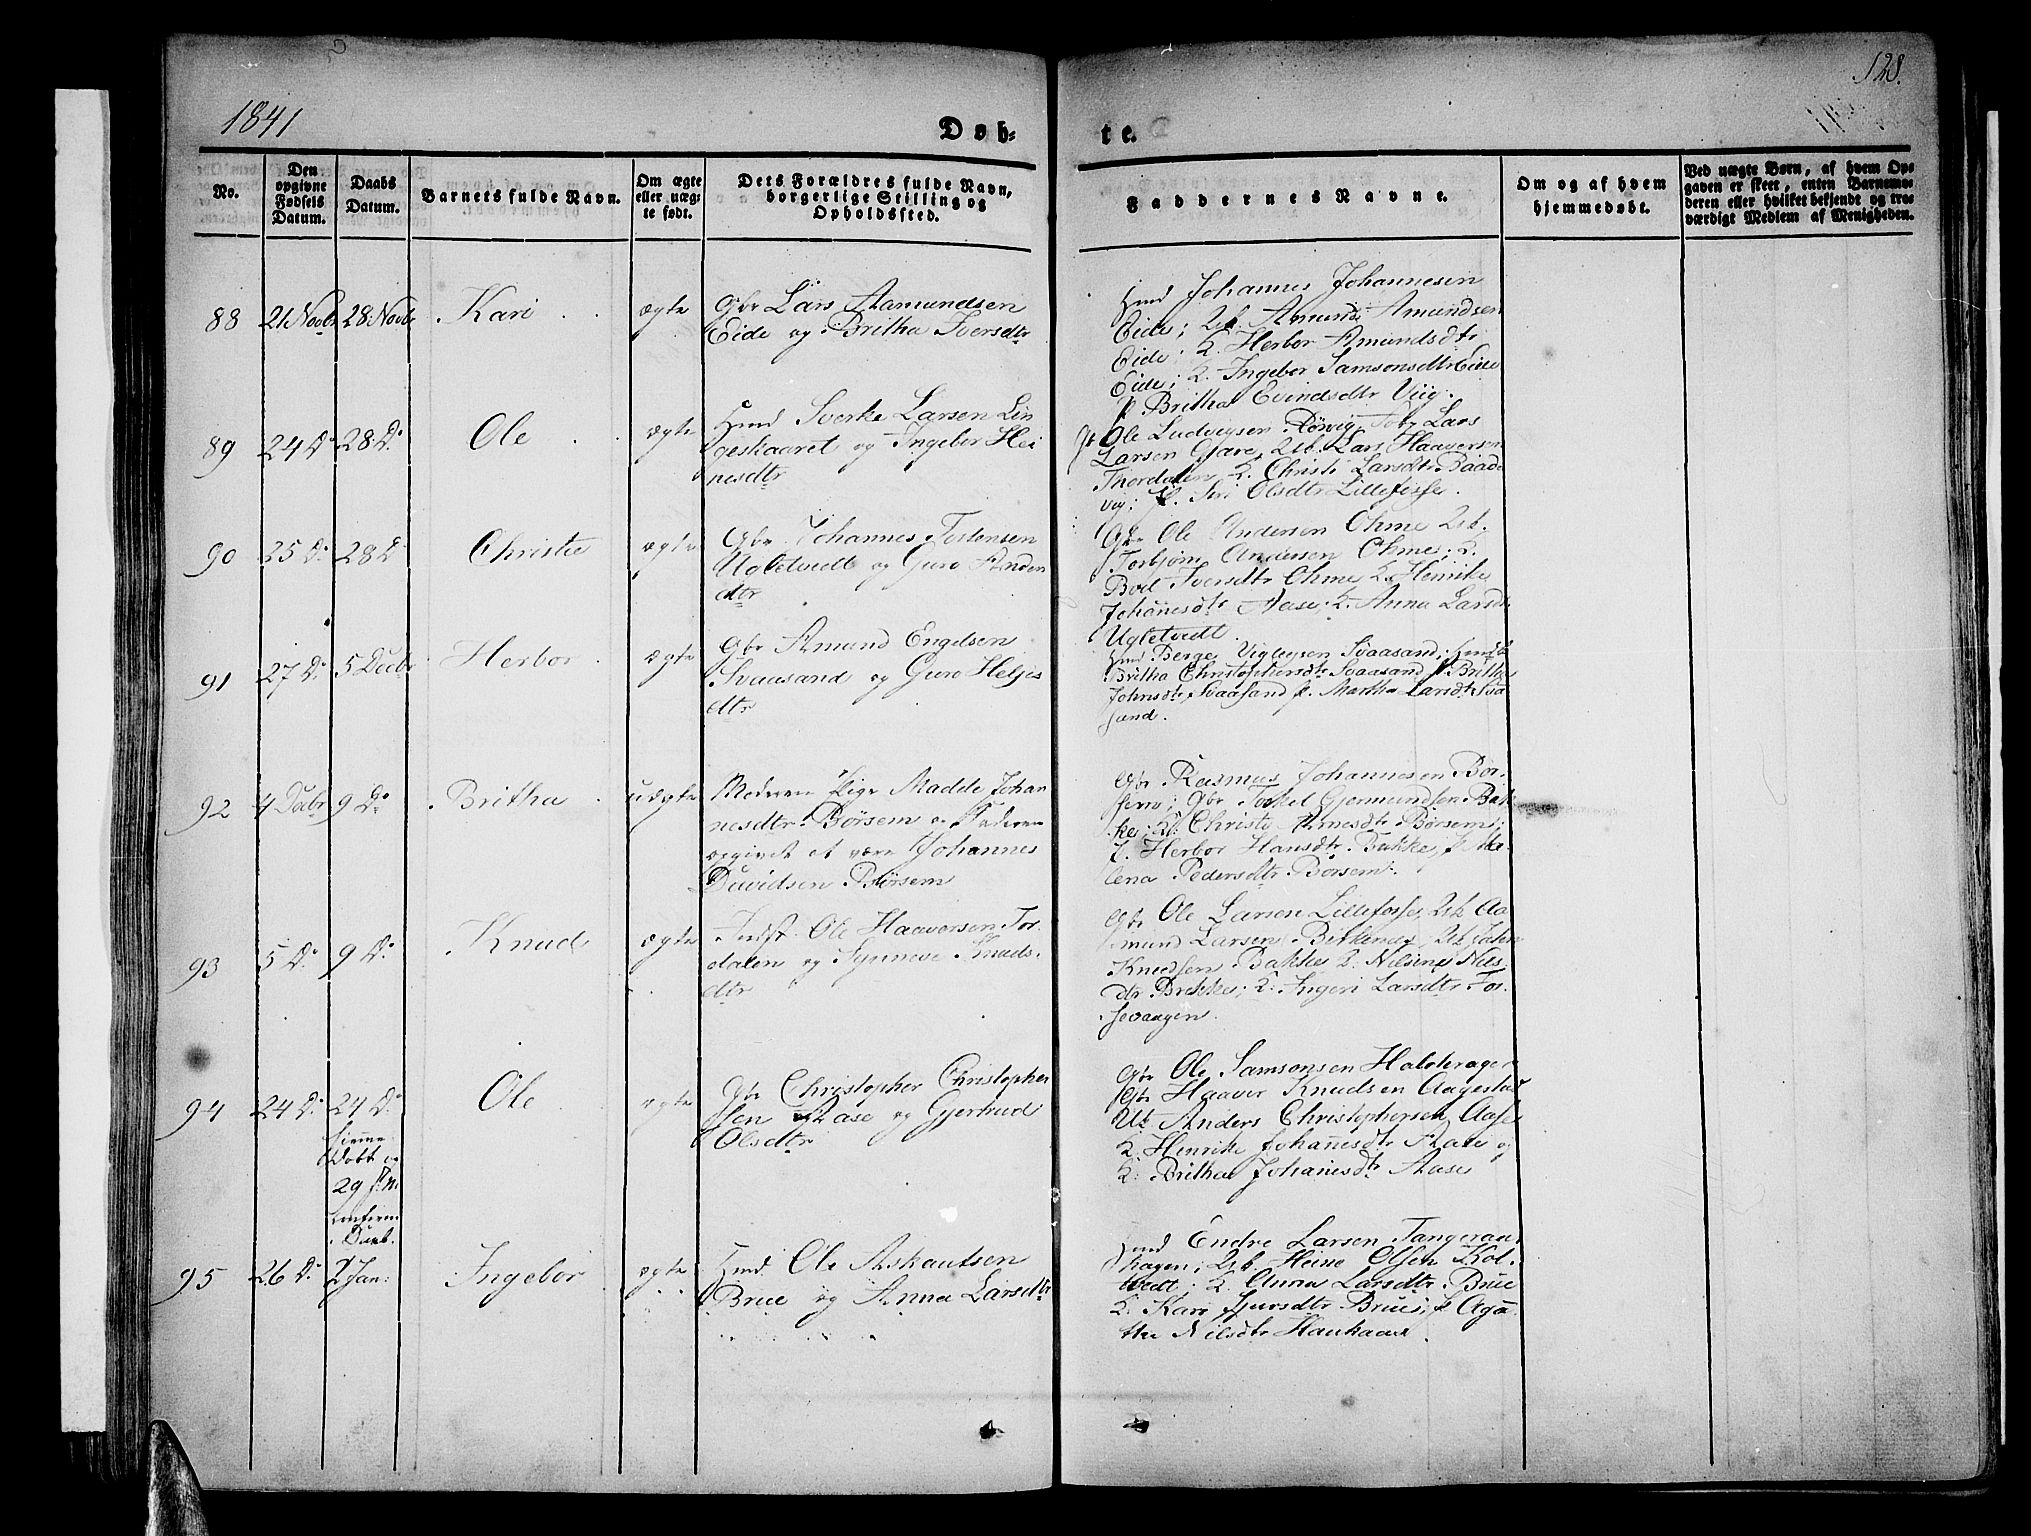 1841
128.
Døb-
te.
No.
Den
opgivne
Fødsels
Datum.
Daabs
Datum.
Barnets fulde Navn.
Om ægte
eller uæg-
te født.
Dets Forældres fulde Navn,
borgerlige Stilling og
Opholdssted.
Faddernes Navne.
Om og af hvem
hjemmedøbt.
Ved uægte Børn, af hvem Op-
gaven er skeet, enten Barnemo-
deren eller hvilket bekjendt og tro-
værdigt Medlem af Menigheden.
88
21 Novbr
28 Novbr
Kari
ægte
Gbr Lars Aamundsen
Eide og Britha Iversdtr
Hmd Johannes Johannesen
Eide; Amund Amundsen
Eide; Herbor Amundsdtr
Eide; Ingebor Samsonsdtr Eide
p Britha Evindsdtr Viig.
89
24 Do
28 Do
Ole
ægte
Hmd Sverke Larsen Lin
geskaaret og Ingebor Hei
nesdtr
Ole Ludvigsen Lars
Larsen Gjære, Lars Haaversen
Thordalen, Christi Larsdtr Baade
vig; Siri Olsdtr Lillefosse.
90
25 Do
28 Do
Christie
ægte
Gbr Johannes Tostensen
Ugletvedt og Guro Anden
dtr
Gbr Ole Andersen Ohme
Torbjørn Andersen Ohme;
Boel Iversdtr Ohme, Henrike
Johannesdtr Aase; Anna Larsdtr
Ugletvedt.
91
27 Do
5 Decbr
Herbor
ægte
Gbr Amund Engelsen
Svaasand og Guro Heljes
dtr
Hmd Berge Vigleysen Svaasand;
Britha Christophersdtr Svaasand p Britha
Johnsdtr Svaasand p. Martha Larsdtr Svaa
sand.
92
4 Decbr
9 Do
Britha
uægte
Moderen Pige Madde Johan
nesdtr Børsem og Faderen
opgivet at være Johannes
Davidsen Børsem
Gbr Rasmus Johannesen Bør-
sem; Gbr Torkel Gjermundsen Bak
ke; Christi Arnesdtr Børsem;
Herbor Hansdtr Bakke, p Ma
lena Pedersdtr Børsem.
93
5 Do
9 Do
Knud
ægte
Indst Ole Haaversen Tor-
dalen og Synneve Knuds-
dtr
Gbr Ole Larsen Lillefosse, Aa
mund Larsen Birkenes,
Knudsen Bakke Nilsine Nils
dtr Brekke; Ingeri Larsdtr Fos
sevangen.
94
24 Do
24 Do
hjemme
døbt og
29
confirm
Decb.
Ole
ægte
Gbr Christopher Christopher
sen Aase og Gjertrud
Olsdtr
Gbr Ole Samsonsen Halderager
Gbr Haaver Knudsen Aagestad
Anders Christophersen Aase
Henrike Johannesdtr Aase og
Britha Johannesdtr Aase
95
26 Do
2 Jan:
Ingebor
ægte
Hmd Ole Askautsen
Brue og Anna Larsdtr
Hmd Endre Larsen Tangeran
hagen; Heine Olsen Kol
tvedt; Anna Larsdtr Brue
Kari Sjursdtr Brue; p Aga
the Nilsdtr Haukaas